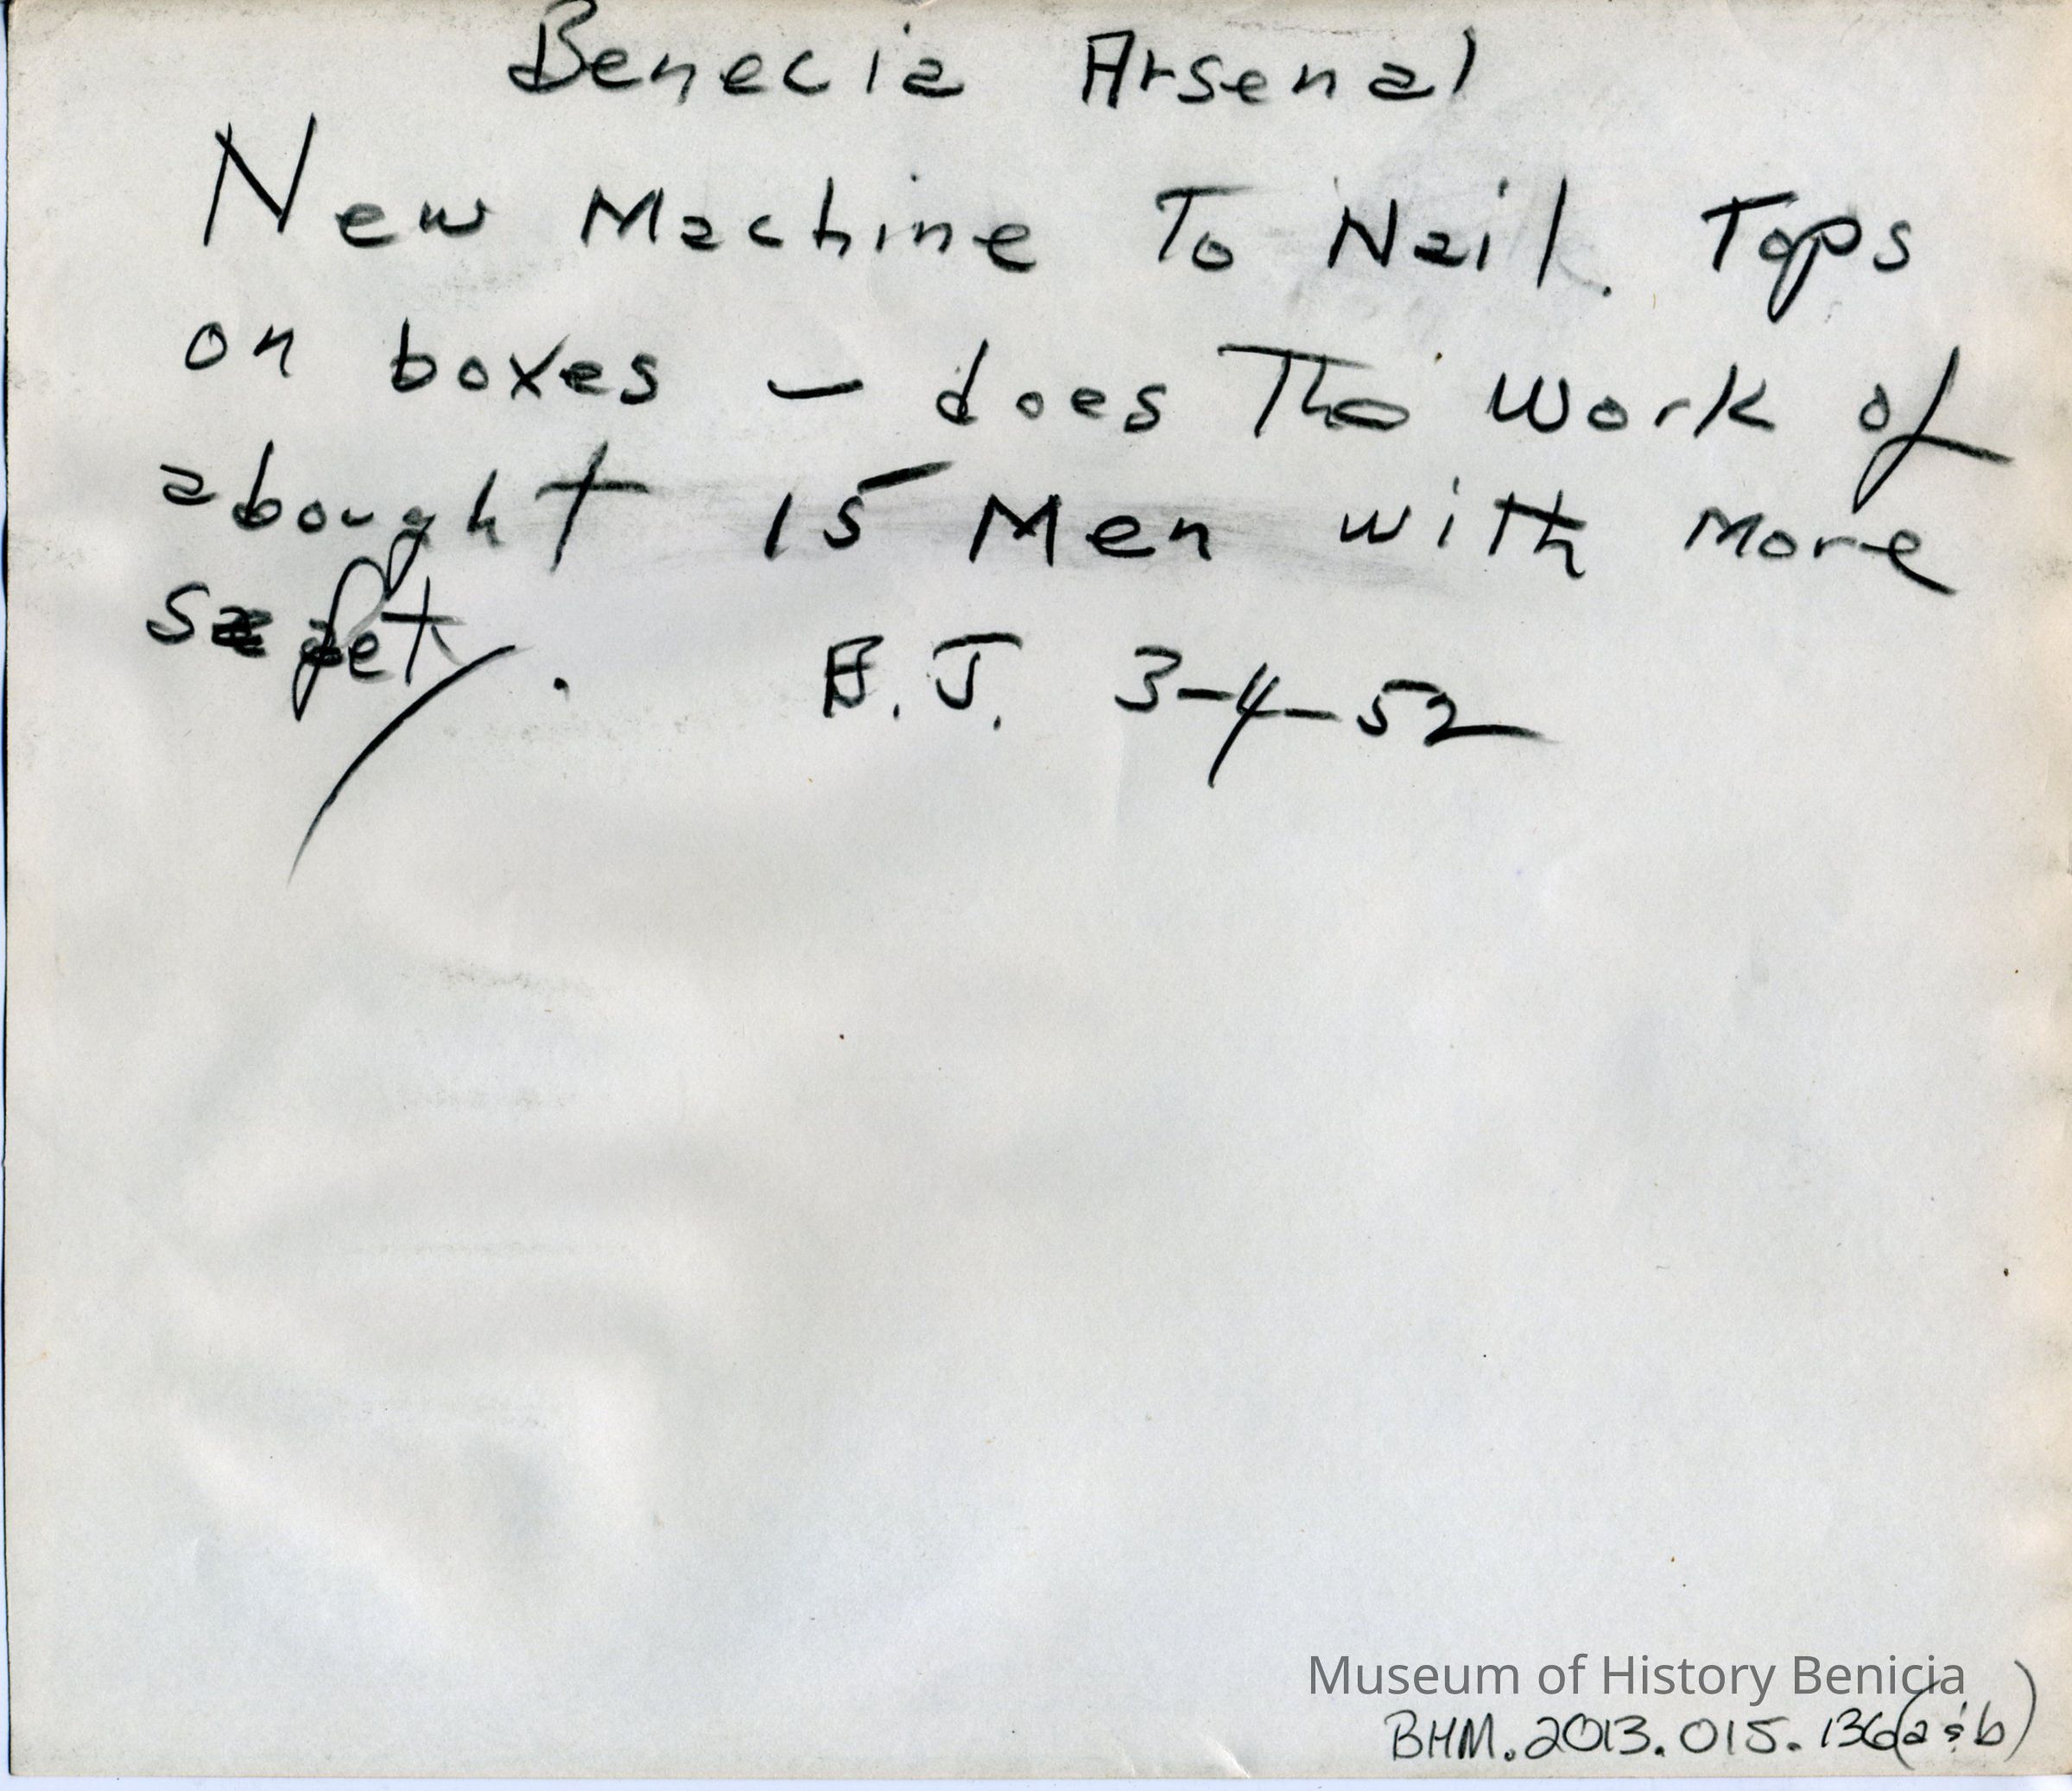 Benecia Arsenal
New Machine To Nail. Tops
on boxes – does The work of
abought 15 Men with More
Safety. B.J. 3-4-52
Museum of History Benicia
BHM.2013.015.136(a & b)